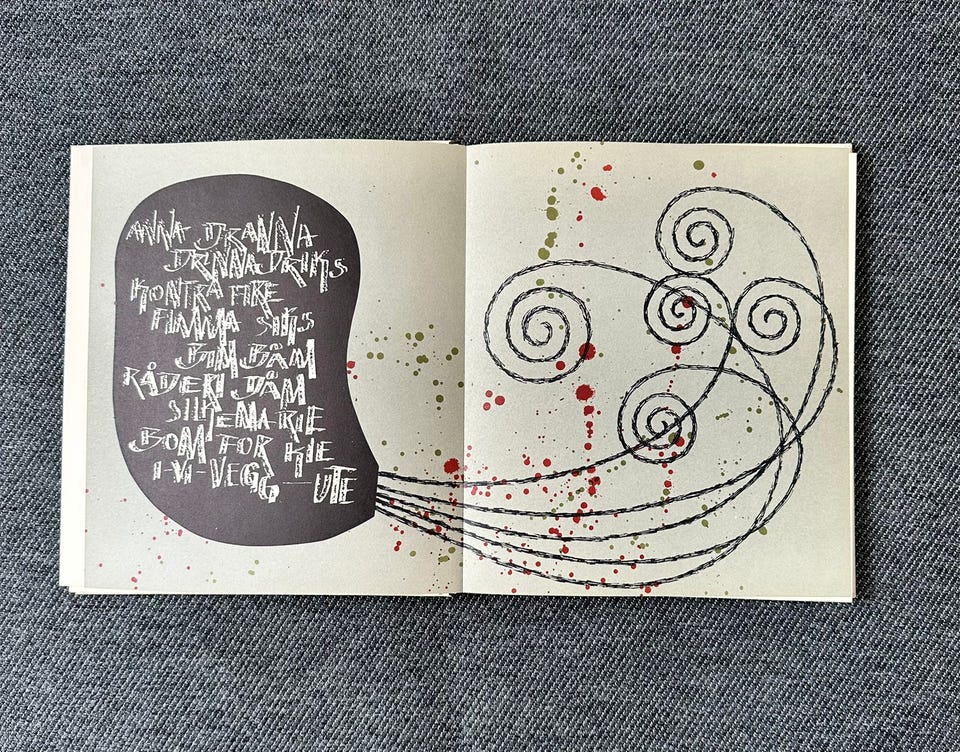 ANNA DRANNA
DRNNA DRIKS
KONTRA FIRE
FIMMA SIKS
BIM BÅM
RÅDERI DÅM
SILKEMARIE
BOM FOR KIE
I-VI-VEGG-UTE